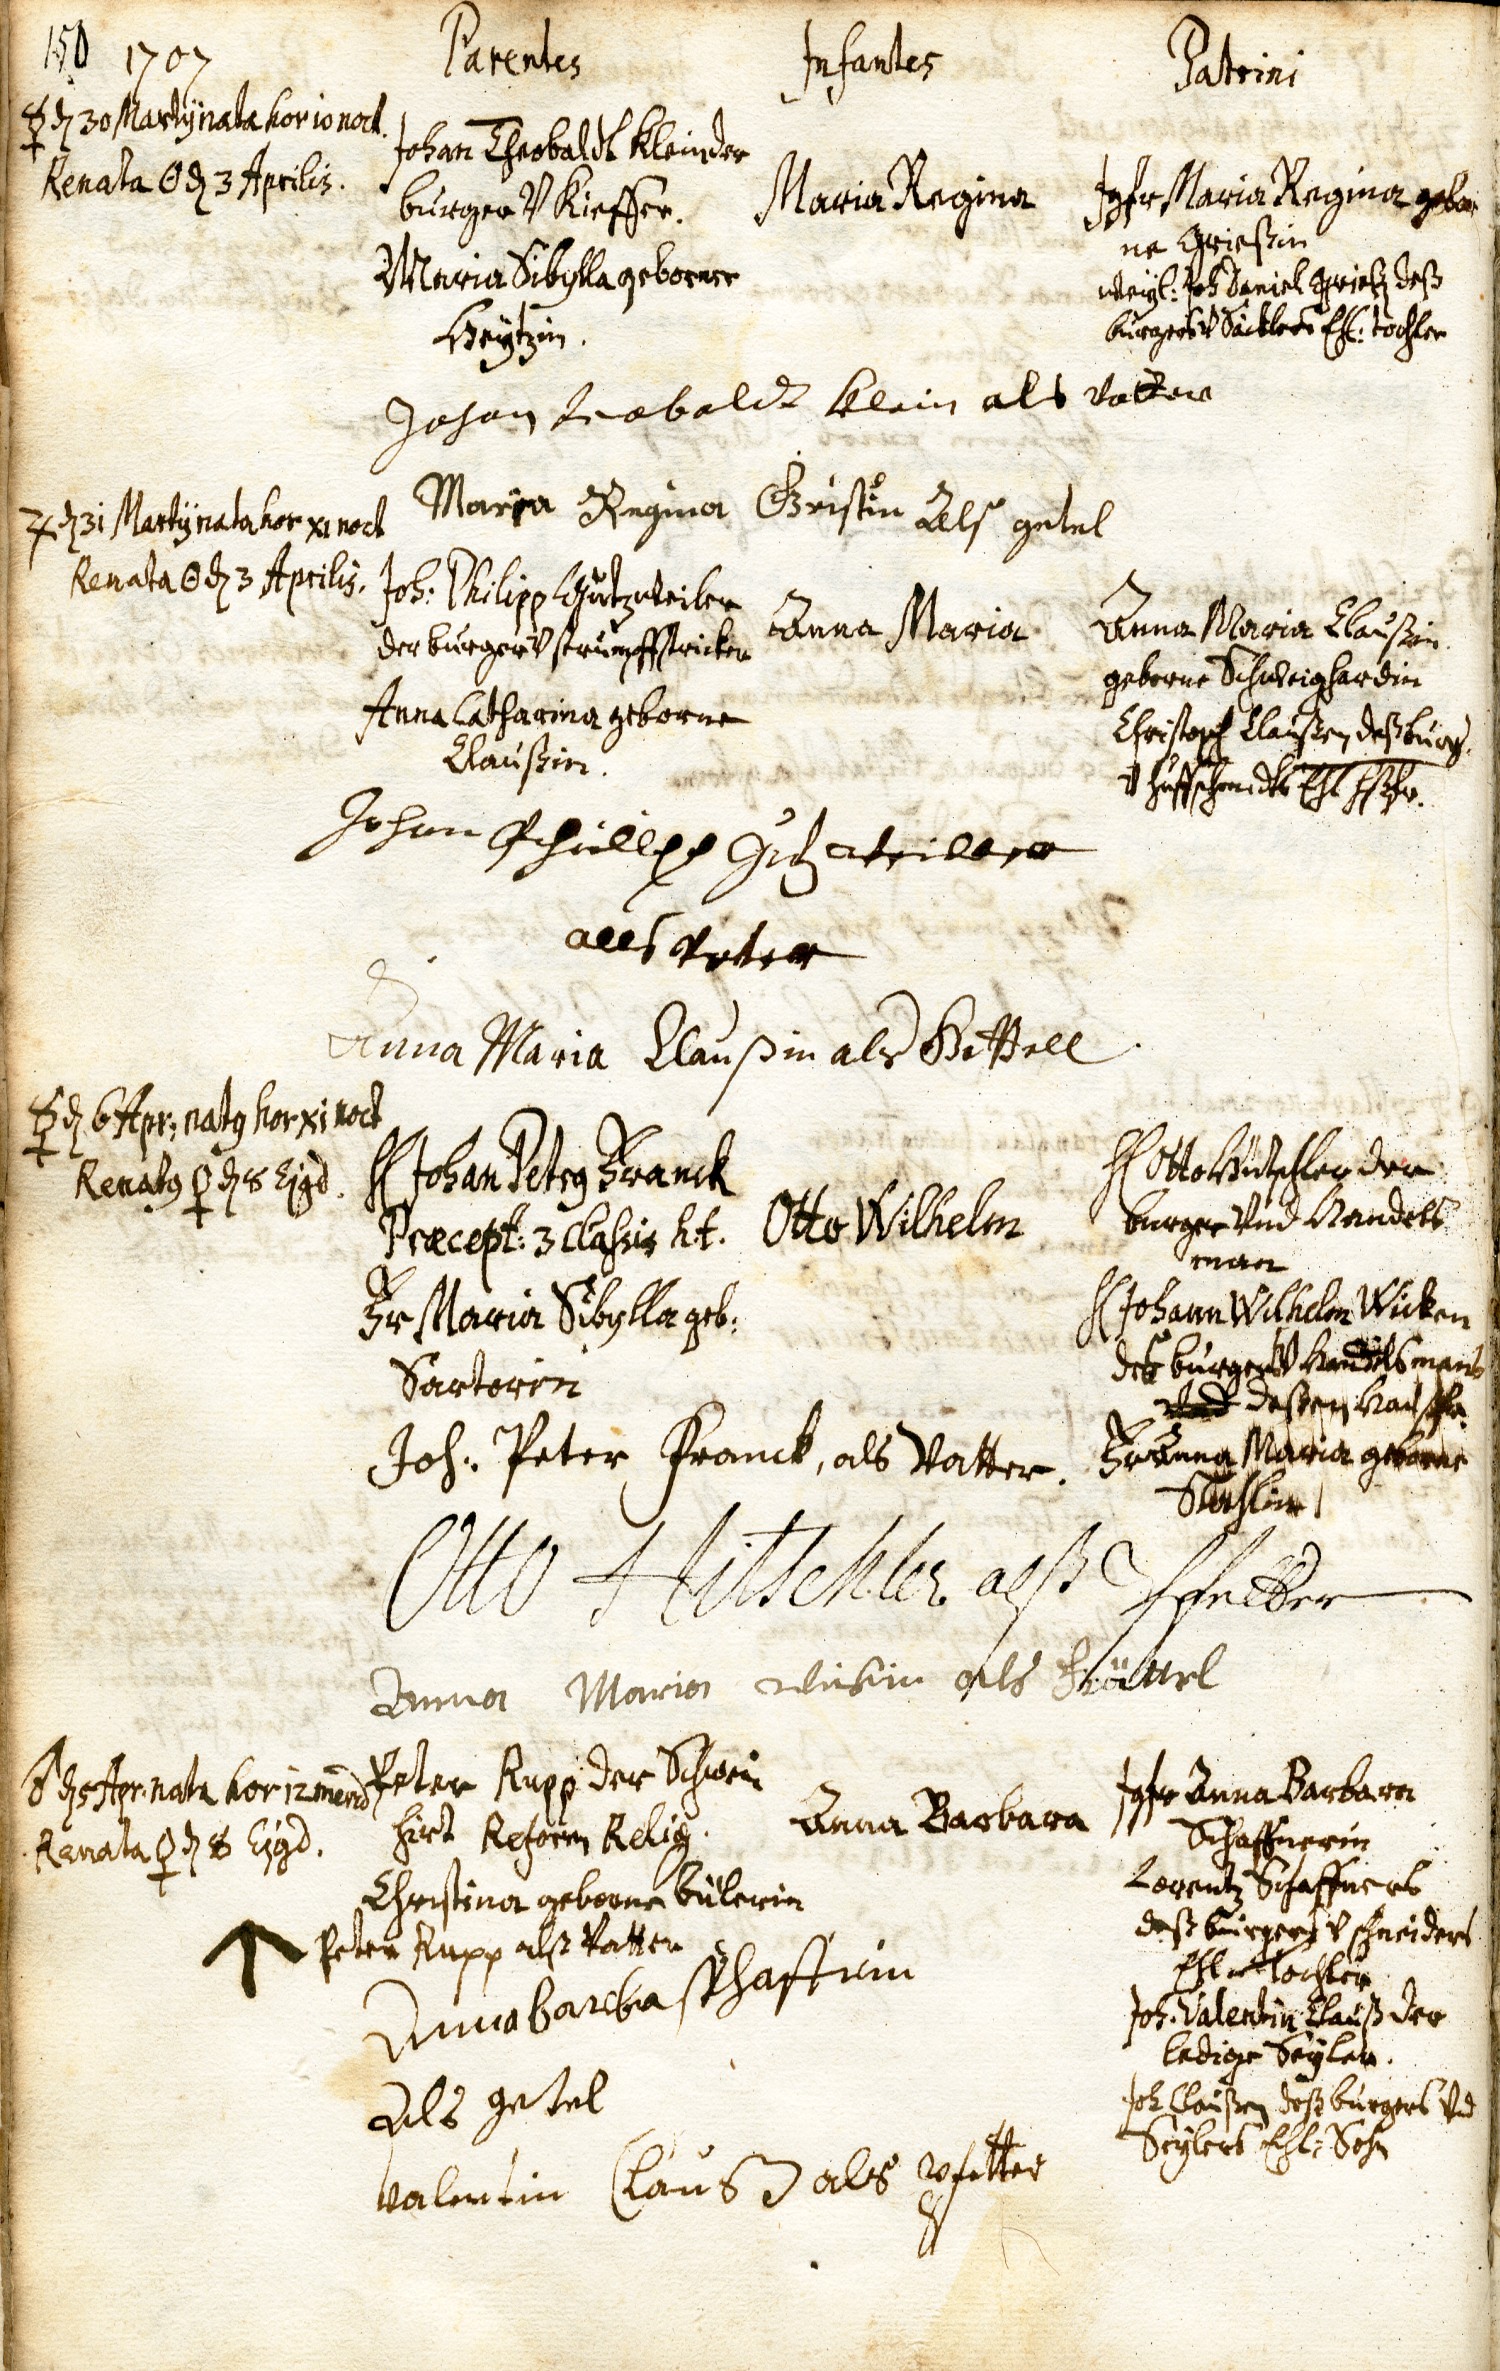 150 1707 Parentes Infantes Patrini
☿ dn 30 Martÿ nata hor 10 noct.
Renata ☉ dn 3 Aprilis.
Johan Theobaldt Klein der
burger V Kieffer.
Maria Sibylla geborner
Heytzin.
Maria Regina
Jgfr Maria Regina gebor
ne Grießin
weyl: Joh Daniel Grießen deß
burgers V Säcklers Ehl: tochter
Johan teobaldt Klein als vatter
Maria Regina Grisin Als getel
♃ dn 31 Martÿ nata hor XI noct
Renata ☉ dn 3 Aprilis.
Joh: Philipp Gutzweiler
der burger V strumpffstricker
Anna Catharina geborne
Claußin.
Anna Maria
Anna Maria Claußin
geborne Schweighardin
Christoph Claußen deß burg.
V huffschmidts Ehl
Johan Philipp Gutzweiller
alls Vatter
Anna Maria Claußin als Gettell
☿ dn 6 Apr: natg hor XI noct
Renatg ♀ dn 8 Ejgd.
H Johan Peter Franck
Præcept: 3 Classis h.t.
Fr Maria Sibylla geb:
Sartorin
Otto Wilhelm
H Otto Hütschler der
burger Vnd Handels
man
H Johann Wilhelm Wicken
deß burgers V Handelsmans
deßen
Fr Anna Maria geborne
Joh: Peter Franck, als Vatter.
Otto Hitschler alß Pfetter
Anna Maria wickin als
♂ dn 5 Apr. nata hor 12 merid
Renata ♀ dn 8 Ejgd.
Peter Rupp der Schwein
hirt Reform Relig.
Christina geborne Bülerin
Anna Barbara
Jgfr Anna Barbara
Schaffnerin
Lorentz Schaffners
deß burgers V schneiders
Ehl tochter
Joh. Valentin Clauß der
ledige Seyler.
Joh Claußen deß burgers Vnd
Seylers Ehl: Sohn
Peter Rupp alß Vatter
Anna barba schaffnerin
Als getel
Valentin Clauß als pfetter